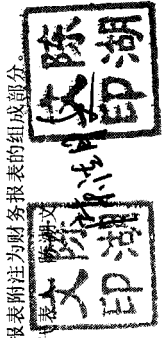 报表附注为财务报表的组成部分。
代表人
陈湖
文印
陈湖
文印